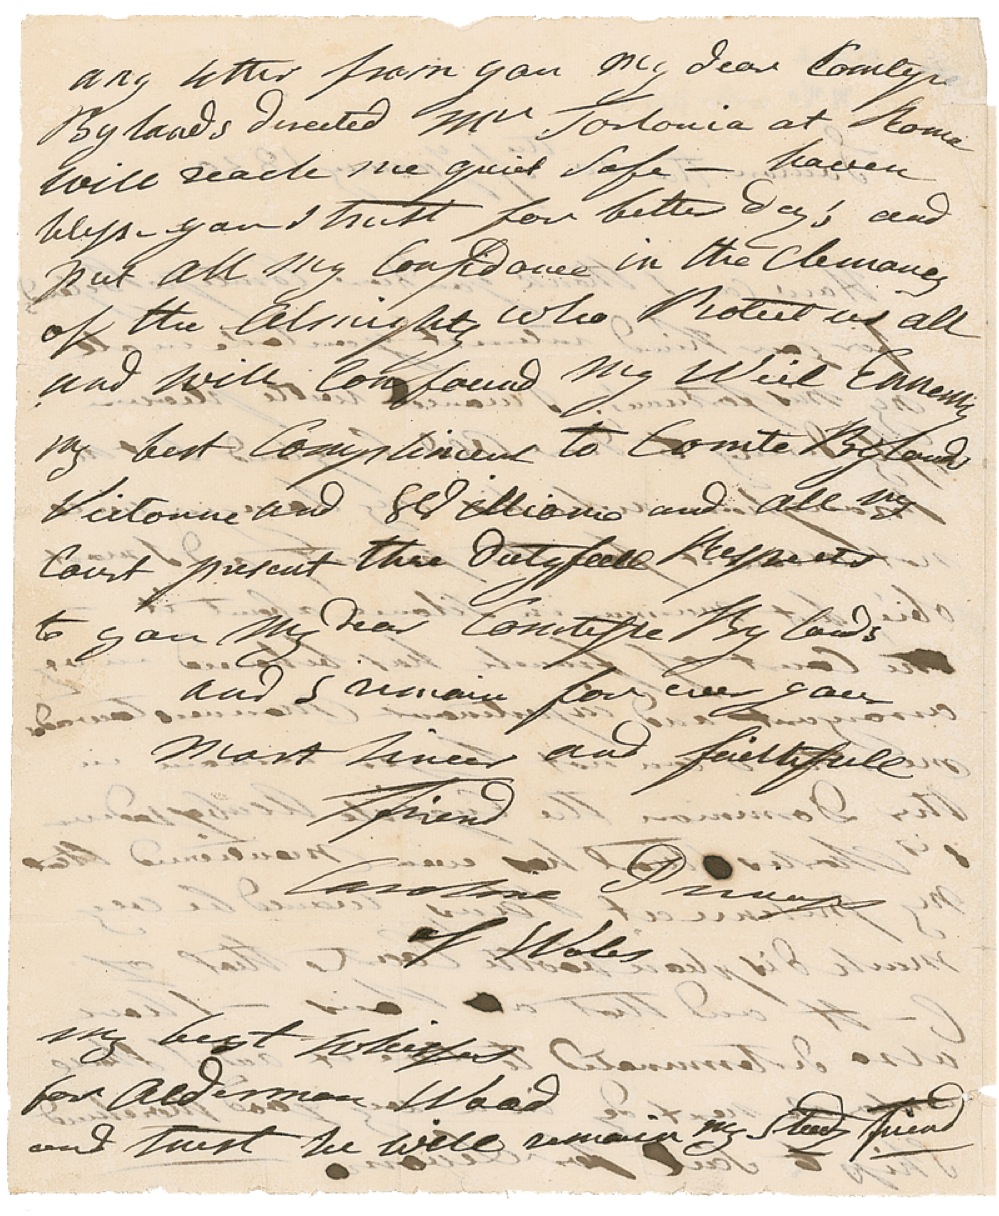 any letter from you my dear Comtesse
Bylands directed Mr Torlonia at Rome
will reach me quiet Safe – heaven
bless you I trust for better day's and
put all my Confidance in the Clemancy
of the Almighty who Protect us all
and will Confound my Ennemy
my best Compliment to Comte Bylands
Victorine and Williame and all my
Court present thee dutyfull Respects
to you my dear Comtesse Bylands
and I remain for ever your
Most Sincer and faithfull
friend
Caroline Princess
of Wales
my best Whishes
for Alderman Wood
and trust he will remain my friend